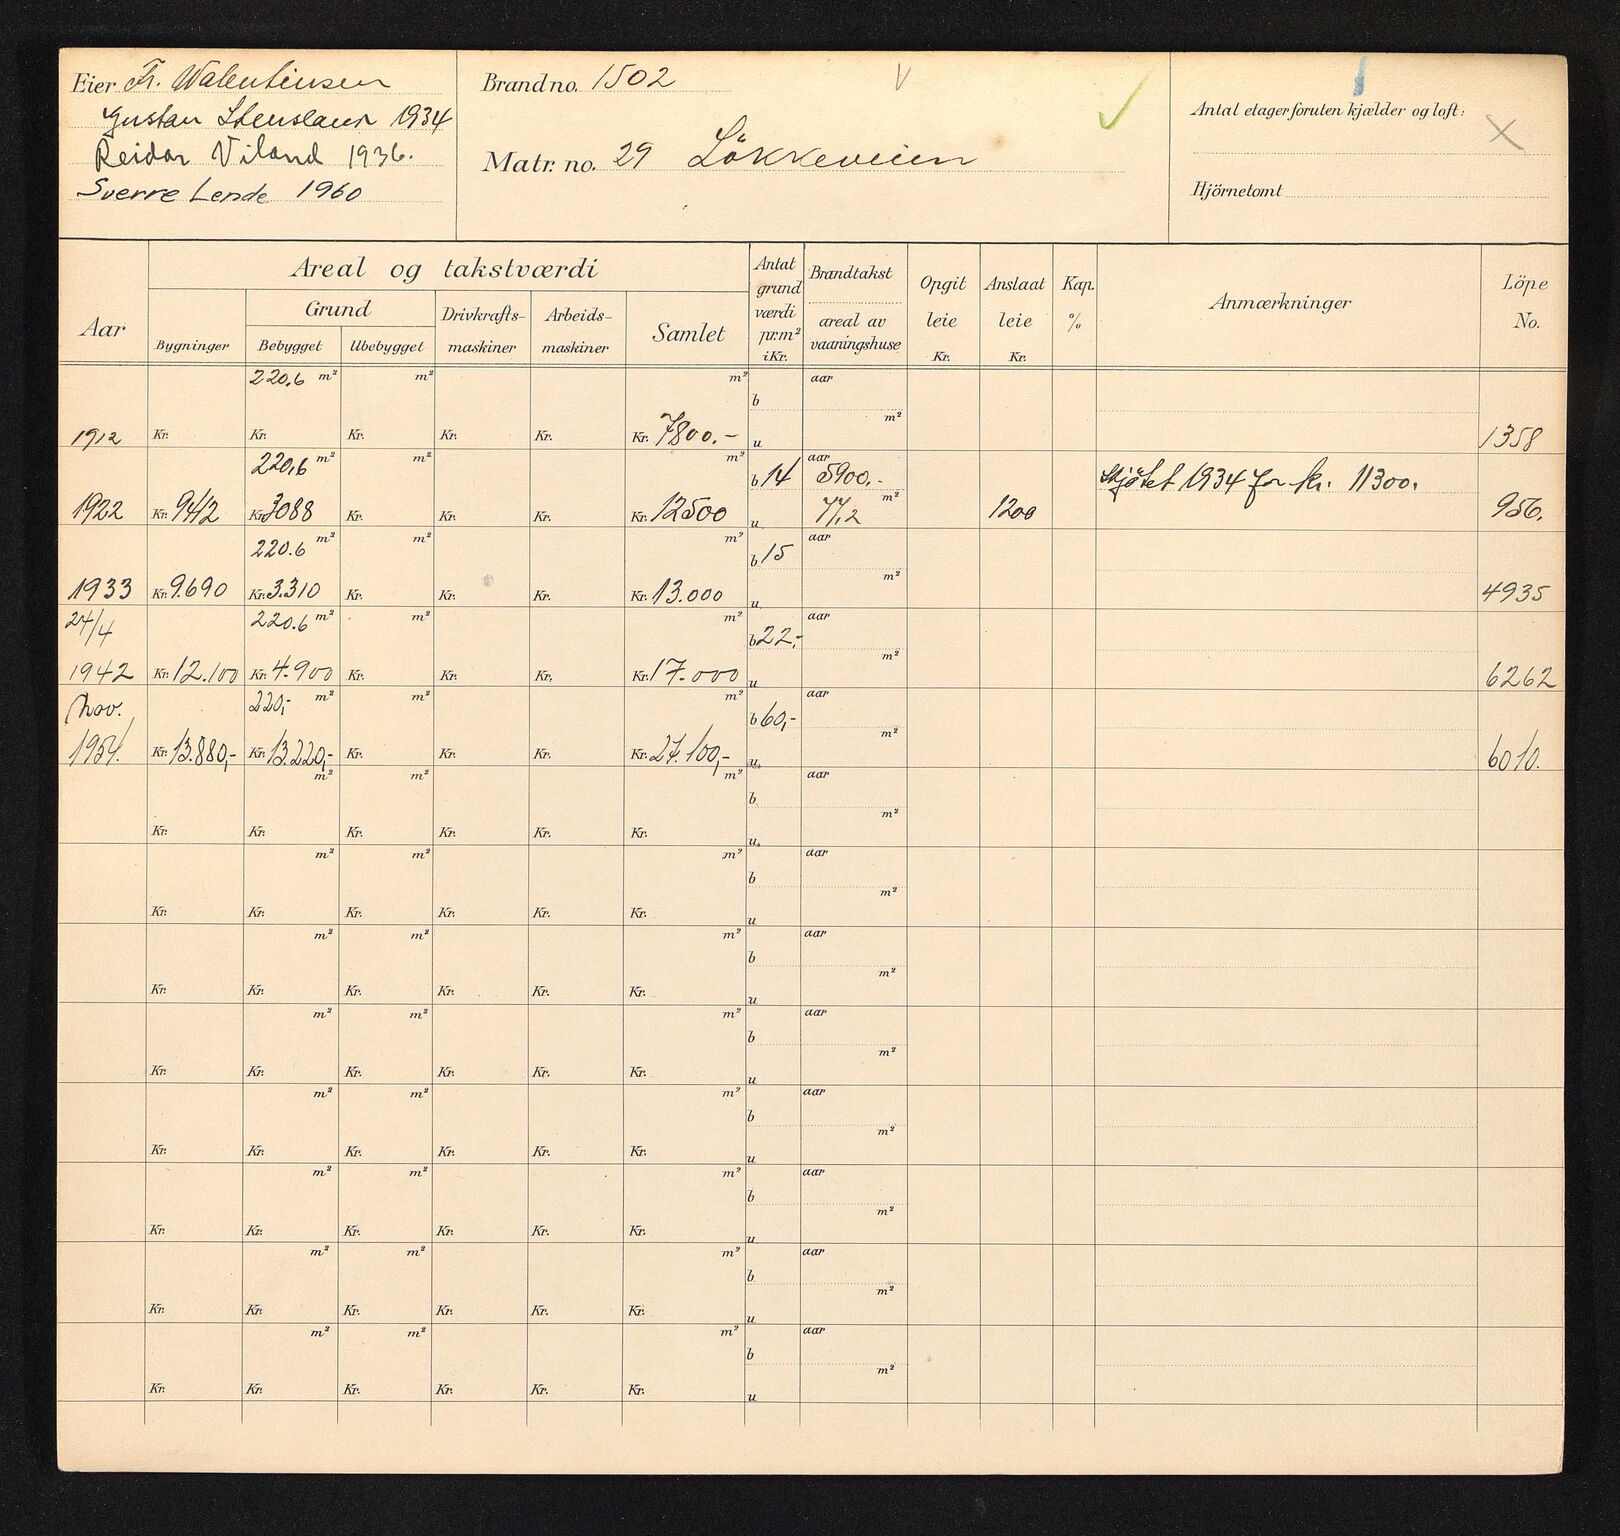 Eier Fr. Walentinsen
Gustav Stensland 1934
Reidar Viland 1936.
Sverre Lende 1960
Brand no. 1502
Matr. no. 29 Lökkeveien
Antal etager foruten kjælder og loft:
Hjörnetomt
Aar
Areal og takstværdi
Grund
Bygninger Bebygget Ubebygget
Drivkrafts-
maskiner
Arbeids-
maskiner
Samlet
Antat
grund
værdi
pr.m²
i Kr.
Brandtakst
areal av
vaaningshuse
Opgit
leie
Kr.
Anslaat
leie
Kr.
Kap.
%
Anmærkninger
Löpe
No.
220.6 m² m² m² aar
b
m²
1912 Kr. Kr. Kr. Kr. Kr. Kr. 7800.- u 1358
220,6 m² m² m² b 14 aar 5900.- Skjötet 1934 for kr. 11300.
1922 Kr. 9412 Kr. 3088 Kr. Kr. Kr. Kr. 12500 u 77,2 m² 1200 956.
220.6 m² m² m² b 15 aar
m²
1933 Kr. 9.690 Kr. 3.310 Kr. Kr. Kr. Kr. 13.000 u 4935
24/4 220.6 m² m² m² b 22,- aar
m²
1942 Kr. 12.100 Kr. 4.900 Kr. Kr. Kr. Kr. 17.000 u 6262
Nov. 220,- m² m² m² b 60,- aar
m²
1954. Kr. 13.880,- Kr. 13.220,- Kr. Kr. Kr. Kr. 27.100,- u. 6010.
m² m² m² aar
b
m²
Kr. Kr. Kr. Kr. Kr. Kr. u.
m² m² m² aar
b
m²
Kr. Kr. Kr. Kr. Kr. Kr. u
m² m² m² aar
b
m²
Kr. Kr. Kr. Kr. Kr. Kr. u
m² m² m² aar
b
m²
Kr. Kr. Kr. Kr. Kr. Kr. u
m² m² m² aar
b
m²
Kr. Kr. Kr. Kr. Kr. Kr. u
m² m² m² aar
b
m²
Kr. Kr. Kr. Kr. Kr. Kr. u
m² m² m² aar
b
m²
Kr. Kr. Kr. Kr. Kr. Kr. u
m² m² m² aar
b
m²
Kr. Kr. Kr. Kr. Kr. Kr. u